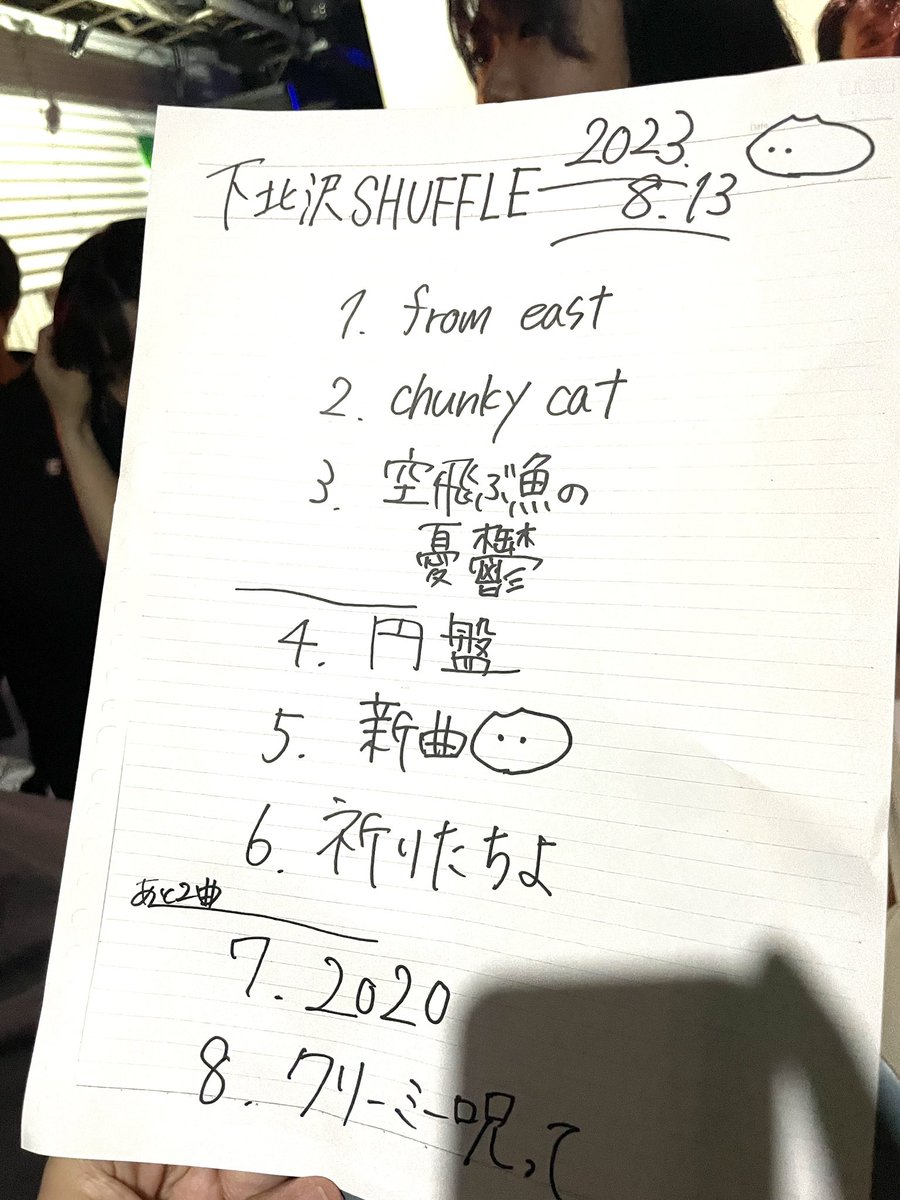 2023.
下北沢SHUFFLE 8.13
1. from east
2. chunky cat
3. 空飛ぶ魚の
憂鬱
4. 円盤
5. 新曲
6. 祈りたちよ
あと2曲
7. 2020
8. クリーミー呪って